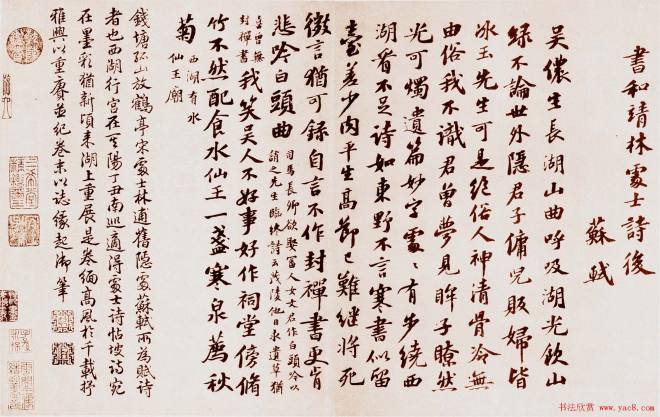 書和靖林處士詩後
蘇軾
吳儂生長湖山曲呼吸湖光飲山
綠不論世外隱君子傭兒販婦皆
冰玉先生可是絕俗人神清骨冷無
由俗我不識君曾夢見眸子瞭然
光可燭遺篇妙字處〻有步繞西
湖看不足詩如東野不言寒書似留
臺差少肉平生高節已難繼將死
微言猶可錄自言不作封禪書更肯
悲吟白頭曲
司馬長卿欲娶富人女文君作白頭吟以
誚之先生臨終詩云茂陵他日求遺草猶
喜曾無
封禪書
我笑吳人不好事好作祠堂傍脩
竹不然配食水仙王一盞寒泉薦秋
菊
西湖有水
仙王廟
錢塘孤山放鶴亭宋處士林逋舊隱處蘇軾所為賦詩
者也西湖行宮在其陽丁丑南巡適得處士詩帖坡詩宛
在墨彩猶新頃來湖上重展是卷緬高風於千載抒
雅興以重賡並紀卷末以誌緣起御筆
书法欣赏 www.yac8.com